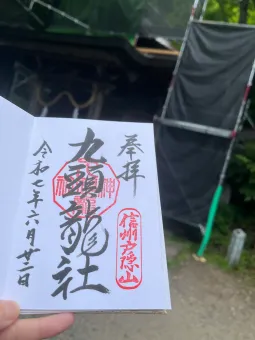 奉拝
信州戸隠山
九頭龍社
令和七年六月廿二日